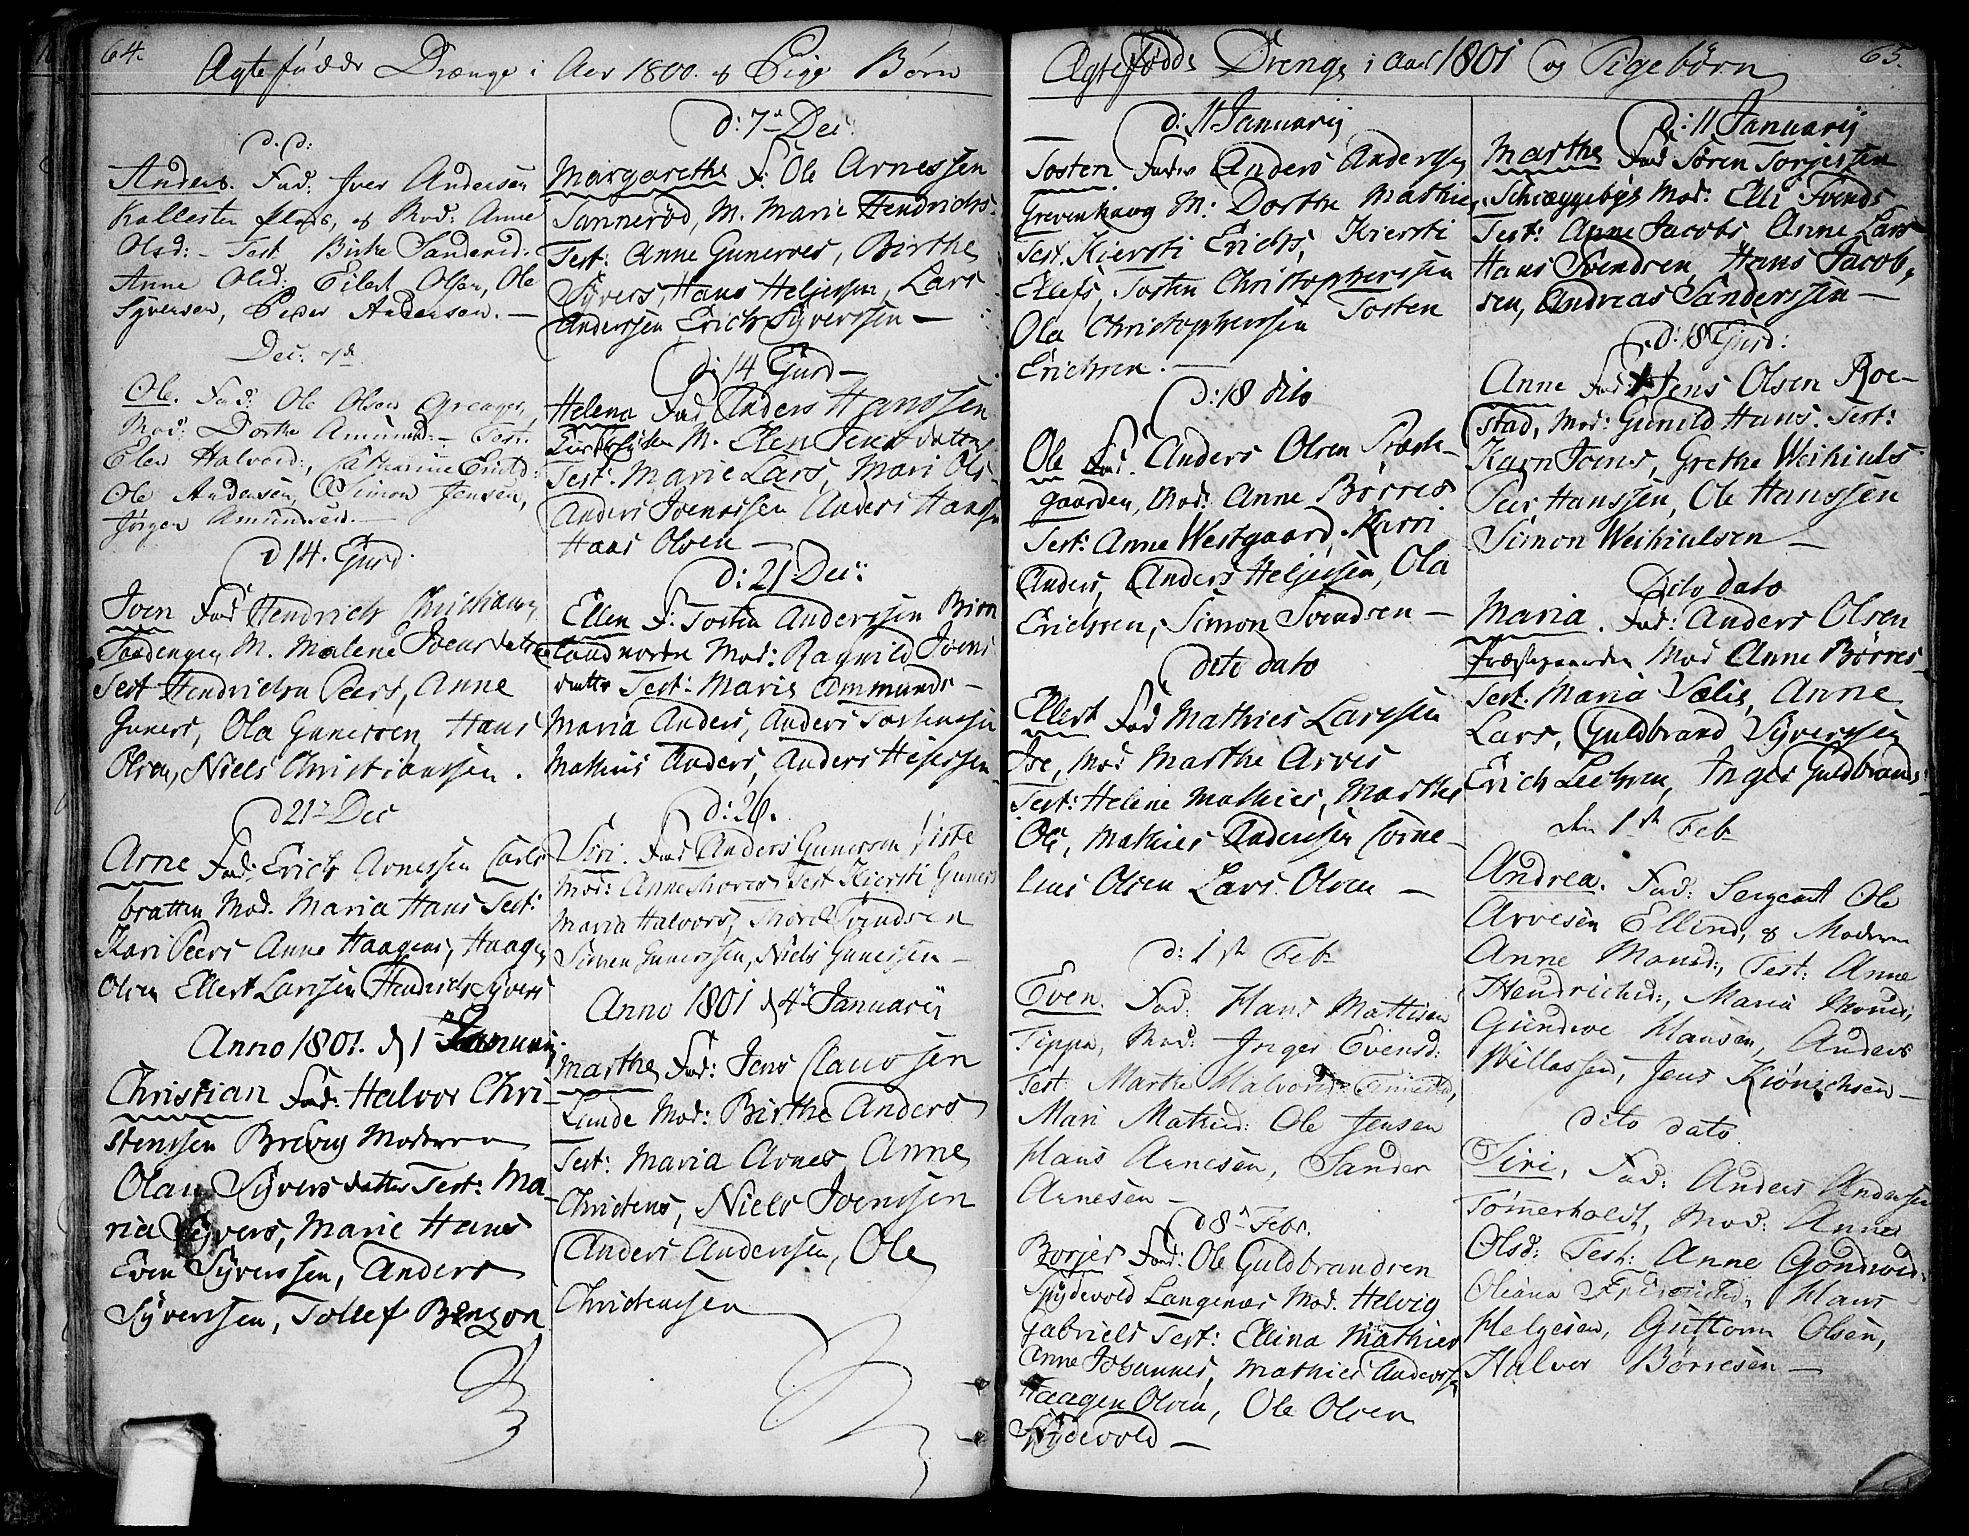 64.
Agtefødde Drænge i Aar 1800. og Pige Børn
d. d:
Anders. Fad: Iver Andersen
Kallesten, og Mod: Anne
Olsd: - Test. Birthe Sanderid:
Anne Olsd:, Eilert Olsen, Ole
Syversen, Peder Andersen. —
Dec: 7de
Ole. Fad: Ole Olsen
Mod: Dorthe Amunds: - Test:
Elen Halvord:, Cathrine Ericsd:
Ole Andersen, Simon Jensen,
Jørgen Amundsen. —
d 14. Ejusd.
Joen Fad Hendrich Christians
M. Malene Joensdatter
Test Hendrichen Peers, Anne
Guners, Ola Gunersen, Hans
Olsen, Niels Christianssen.
d 21 Dec
Arne Fad: Erich Arnessen Carls
bratten Mod. Maria Hans Test:
Kari Peers Anne Haagens, Haagen
Olsen Ellert Larssen Hendrich Syvers
Anno 1801. d 1 Januarij
Christian Fad: Halvor Chri-
stenssen Brevig Moderen
Olau Syversdatter Test: Ma-
ria Syvers, Marie Hans
Even Syverssen, Anders
Syverssen, Tollef Benzon
d: 7de Dec:
Margarethe F: Ole Arnessen
Tannerød, M. Marie Hendrichs
Test: Anne Guneres, Birthe
Syvers, Hans Heljessen, Lars
Anderssen Erich Syverssen —
d: 14 Ejusd —
Helena Fad Anders Hanssen
M. Elen Jensdatter
Test: Marie Lars, Mari Ols
Anders Joenssen Anders Hanssen
Hans Olsen —
d: 21 Dec:
Ellen F: Tosten Anderssen Biørn
land nordre Mod: Ragnild Joens
datter Test: Maris Ammunds —
Maria Anders, Anders Tostenssen
Mathius Anders, Anders Hejerssen
d: 26.
Siri. Fad Anders Gunerson
Mod: Anne Thores Test Kjersti Guners
Maria Halvors, Thore Svendsen
Simen Gunerssen, Niels Gunerssen —
Anno 1801 d 4de Januarij
Marthe Fad: Jens Claussen
Lunde Mod: Birthe Anders
Test: Maria Arnes Anne
Christens, Niels Joenssen
Anders Anderssen, Ole
Christenssen
65.
Agtefødde Drenge i Aar 1801 og Pigebørn
d: 11 Januarij
Tosten. Fader Anders Anderssen
Grevenhaug M: Dorthe Mathies
Test. Kiersti Erichs, Kiersti
Ellefs, Tosten Christopherssen
Ola Christopherssen Tosten
Erichsen. —
d: 18 dito
Ole Fad. Anders Olsen Præste-
gaarden, Mod. Anne Børres
Test: Anne Westgaard, Karri
Anders, Anders Heljessen, Ola
Erichsen, Simon Svendsen —
dito dato
Ellert Fad Mathies Larssen
Ire, Mod Marthe Arves
Test: Helene Mathies, Marthe
Ole, Mathies Anderssen Corne-
lius Olsen Lars Olsen —
d: 1ste Feb
Even. Fad: Hans Mattisen
Tippa, Mod: Inger Evensd:
Test: Marthe Halvorsd:
Mari Mathisd: Ole Jensen
Hans Arnesen, Sander
Arnesen —
d 8de Febr.
Borjer Fad: Ole Guldbrandsen
Spydevold Langenæs Mod. Helvig
Gabriels Test: Ellina Mathies
Anne Johannes, Mathies Anderssen
Haagen Olsen, Ole Olsen
Spydevold —
d: 11 Januarij
Marthe Fad Søren Torjessen
Schieggebye Mod: Elli Svends
Test: Anne Jacobs Anne Lars
Hans Svendsen, Hans Jacob,
sen, Andreas Sanderssen —
d: 18 Ejusd:
Anne Fad: Jens Olsen Roe-
stad, Mod: Gunild Hans. Test:
Karn Joens, Grethe Weikiuls
Peer Hanssen, Ole Hanssen
Simon Weikiulsen —
Dito dato
Maria. Fad: Anders Olsen
Præstegaarden Mod Anne Børres-
Test. Maria Valis, Anne
Lars, Guldbrand Syverssen
Erich Leehren, Inger Guldbrands
den 1ste Feb
Andrea. Fad: Sergeant Ole
Arvesen Ellind, og Moderen
Anne Monsd:, Test: Anne
Hendrichsd:, Maria
Gundroe Hansen, Anders
Willassen, Jens Kiønichsen —
dito dato.
Siri, Fad: Anders Andersen
Tømerholdt, Mod: Anne
Olsd: Test: Anne
Oleana Friderichsd:, Hans
Helgesen, Guttorm Olsen,
Halvor Børresen —